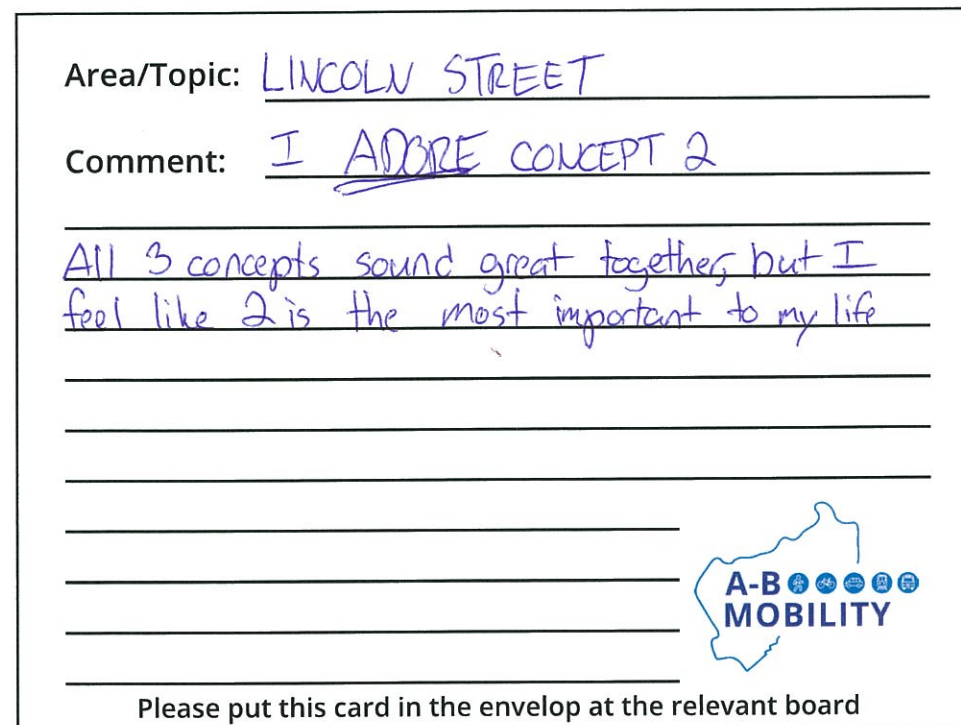 Area/Topic: LINCOLN STREET
Comment: I ADORE CONCEPT 2
All 3 concepts sound great together, but I
feel like 2 is the most important to my life
A-B
MOBILITY
Please put this card in the envelop at the relevant board